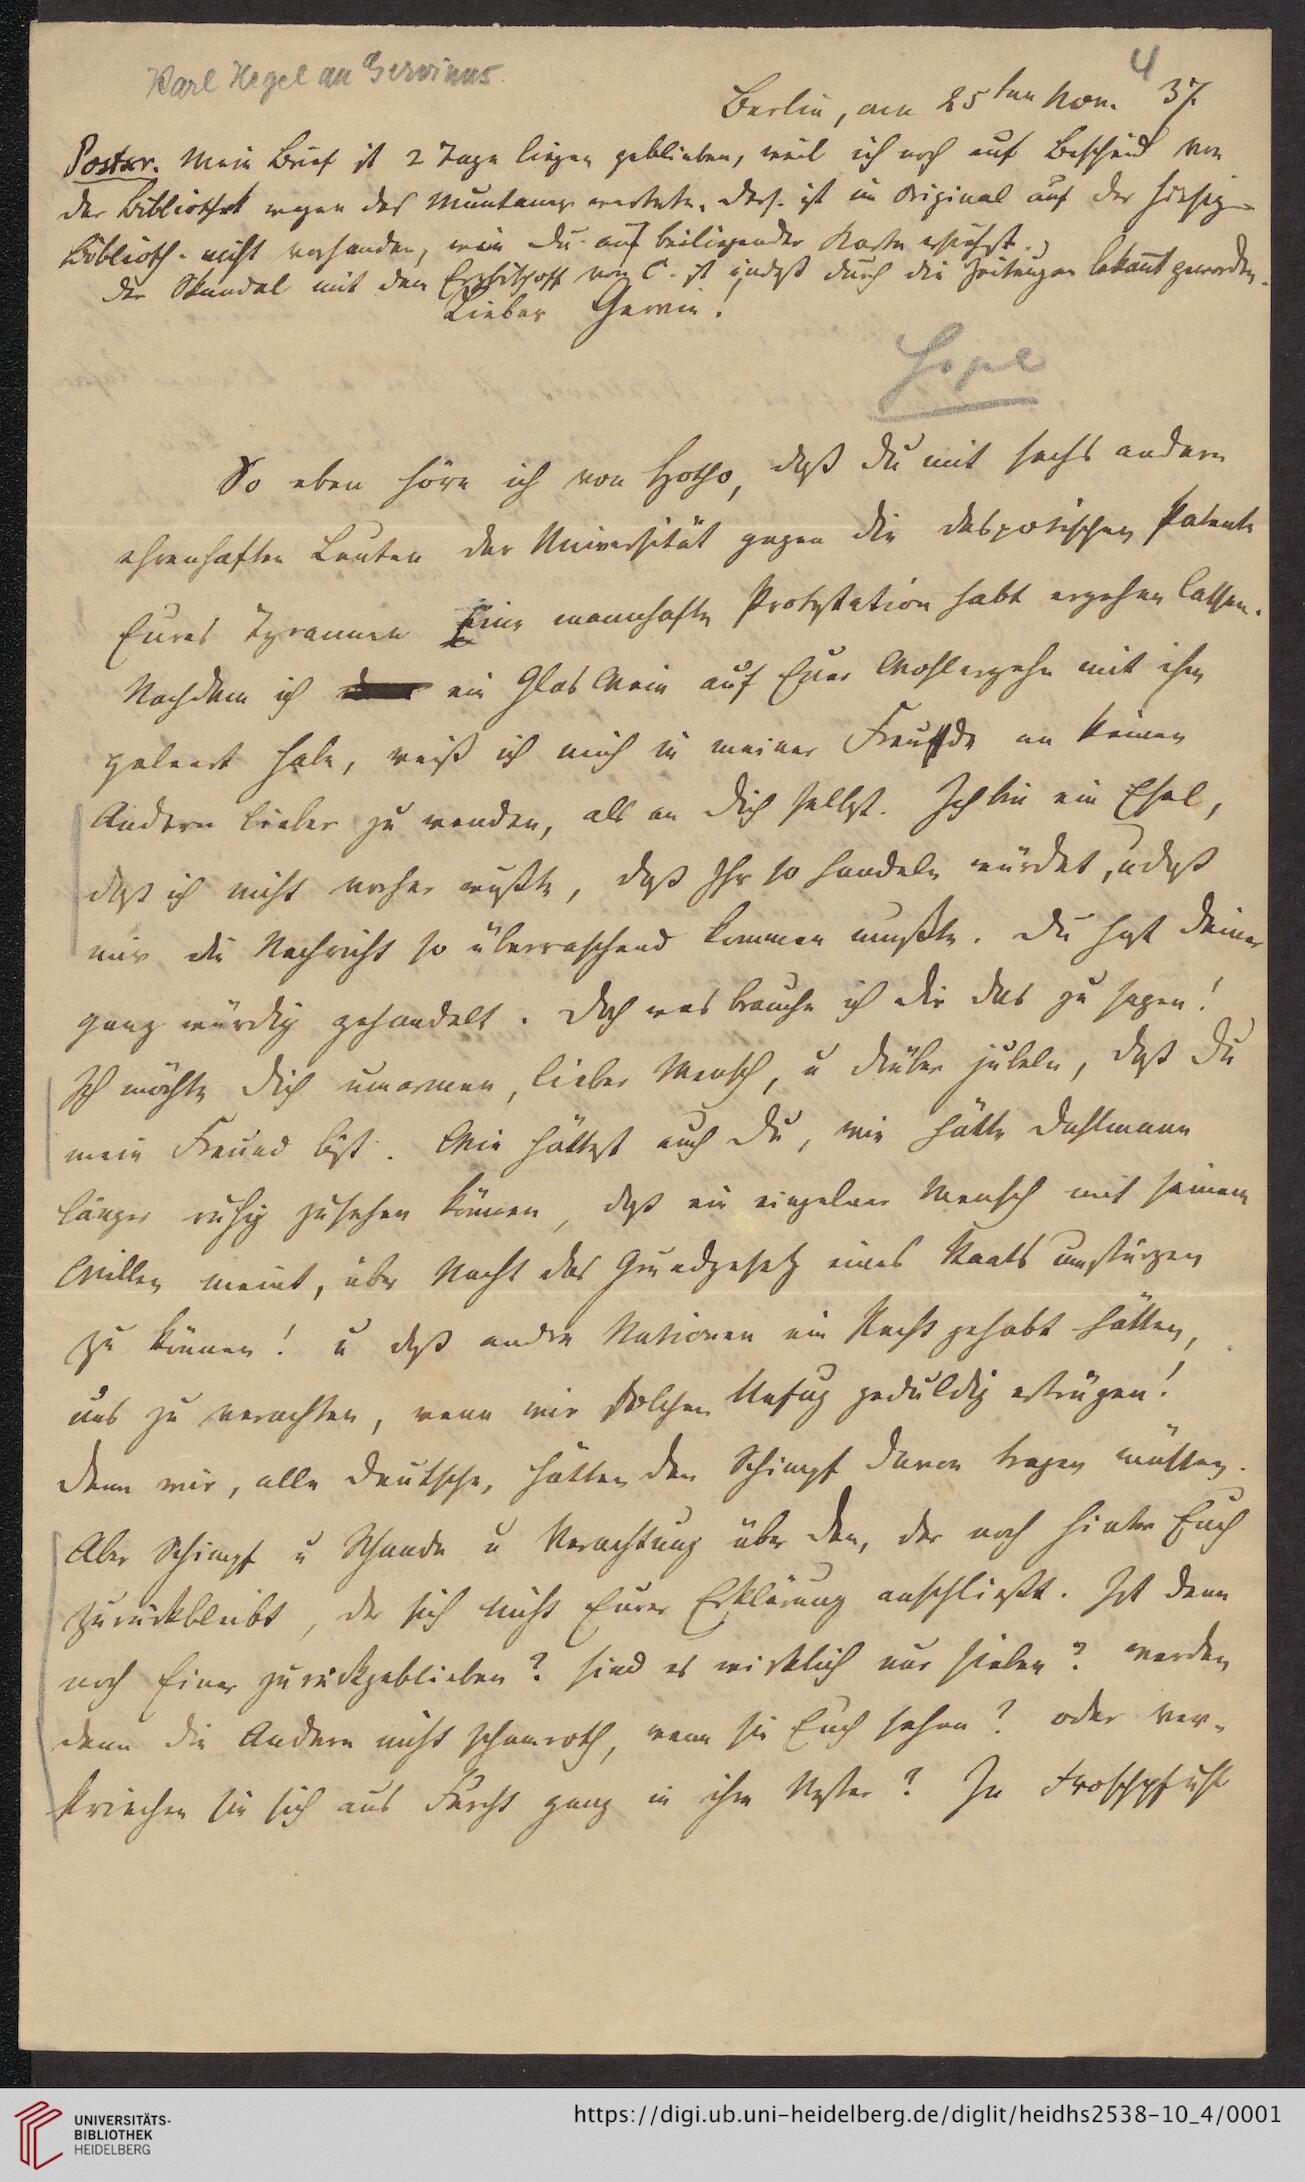 Karl Hegel an Gervinus
4
Berlin, am 25ten Nov. 37.
Postscr. Mein Brief ist 2 Tage liegen geblieben, weil ich noch auf Bescheid von
der Bibliothek wegen des Muntaner wartete. Ders. ist im Original auf der hiesig.
Biblioth. nicht vorhanden, wie Du auf beiliegender Karte ersiehst.
Der Skandal mit dem Erzbischoff von C. ist indeß durch die Zeitungen bekannt geworden.
Lieber Gervin!
Hegel
So eben höre ich von Hotho, daß Du mit sechs andern
ehrenhaften Leuten der Universität gegen die despotischen Patente
Eures Tyrannen eine mannhafte Protestation habt ergehen lassen.
Nachdem ich ein Glas Wein auf Euer Wohlergehn mit ihm
geleert habe, weiß ich mich in meiner Freude an keinen
Andern lieber zu wenden, als an Dich selbst. Ich bin ein Esel,
daß ich nicht vorher wußte, daß Ihr so handeln würdet, u daß
mir die Nachricht so überraschend kommen mußte. Du hast Deiner
ganz würdig gehandelt. Doch was brauche ich Dir das zu sagen!
Ich möchte Dich umarmen, lieber Mensch, u drüber jubeln, daß Du
mein Freund bist. Wie hättest auch Du, wie hätte Dahlmann
länger ruhig zusehen können, daß ein einzelner Mensch mit seinem
Willen meint, über Nacht das Grundgesetz eines Staats umstürzen
zu können! u daß andre Nationen ein Recht gehabt hätten,
uns zu verachten, wenn wir solchen Unfug geduldig ertrügen!
Denn wir, alle Deutsche, hätten den Schimpf davon tragen müssen.
Aber Schimpf u Schande u Verachtung über den, der noch hinter Euch
zurückbleibt, der sich nicht Eurer Erklärung anschließt. Ist denn
noch Einer zurückgeblieben? sind es wirklich nur sieben? werden
denn die Andern nicht schamroth, wenn sie Euch sehen? oder ver-
kriechen sie sich aus Furcht ganz in ihre Nester? In Froschpfuhl
UNIVERSITÄTS-
BIBLIOTHEK
HEIDELBERG
https://digi.ub.uni-heidelberg.de/diglit/heidhs2538-10_4/0001